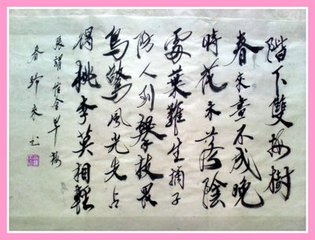 階下雙梅樹
春來畫不成晚
時花未落陰
處葉難生摘子
防人到攀枝畏
鳥驚風光先占
得桃李莫相輕
張謂官舍早梅